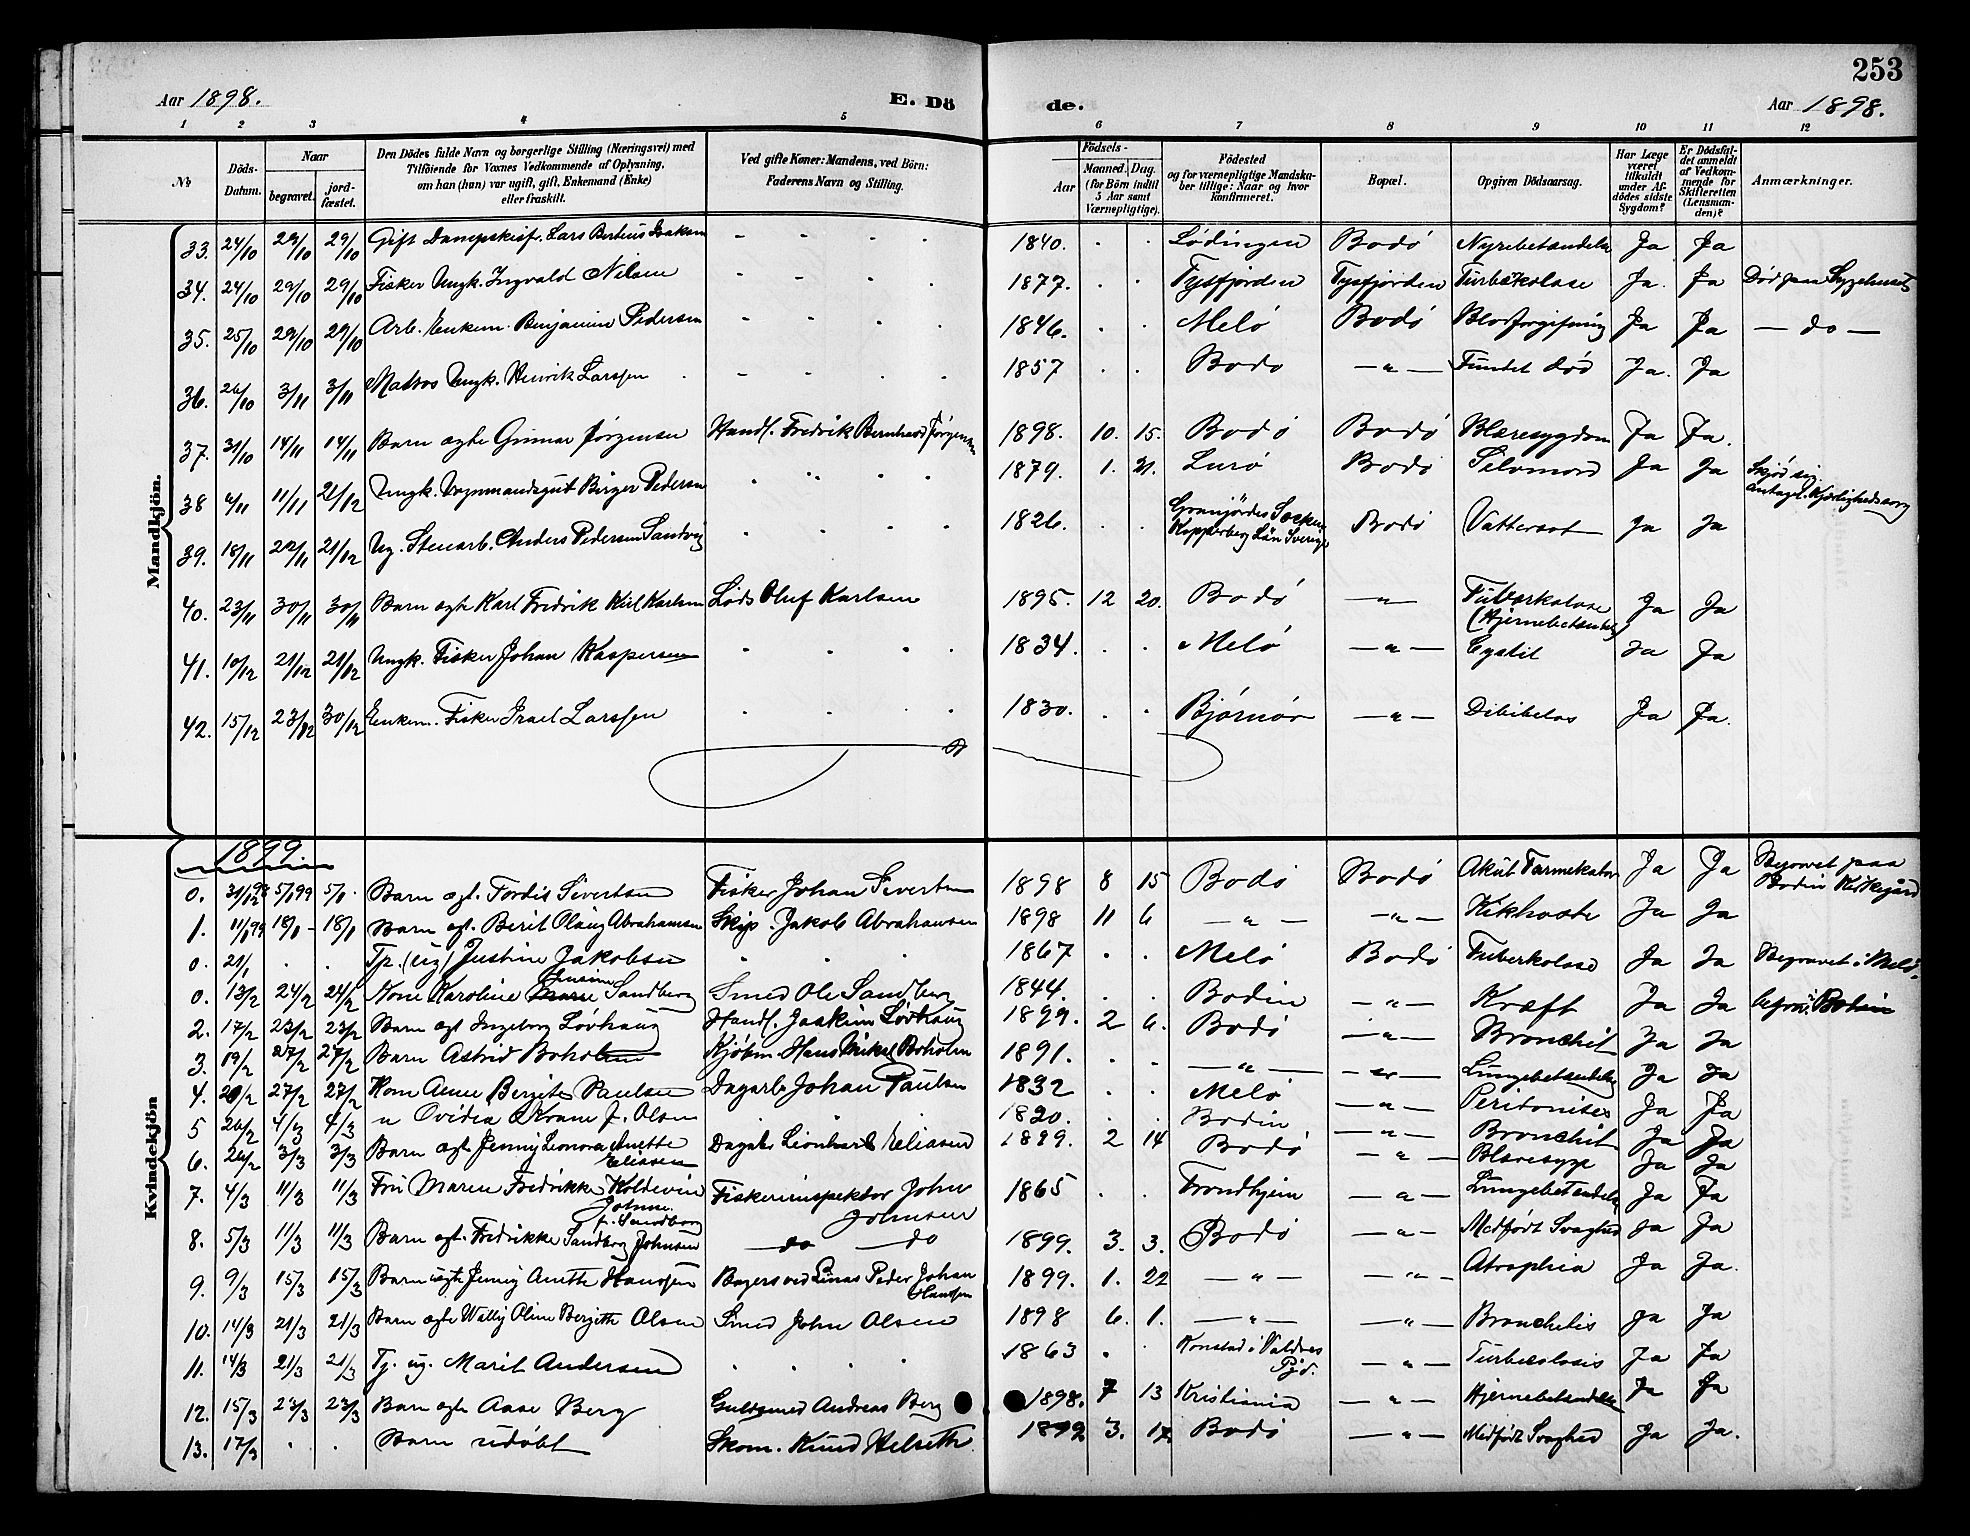 253
Aar 1898. E. Dö de. Aar 1898.
1 2 3 4 5 6 7 8 9 10 11 12
No
Döds-Datum.
Naar
begravet. jordfæstet.
Den Dödes fulde Navn og borgerlige Stilling (Næringsvei) med
Tilföiende for Voxnes Vedkommende af Oplysning,
om han (hun) var ugift, gift, Enkemand (Enke)
eller fraskilt.
Ved gifte Koner: Mandens, ved Börn:
Faderens Navn og Stilling.
Födsels-
Aar Maaned. Dag.
(for Börn indtil
5 Aar samt
Værnepligtige).
Födested
og for værnepligtige Mandskaber tillige: Naar og hvor
konfirmeret.
Bopæl.
Opgiven Dödsaarsag.
Har Læge været tilkaldt under Afdödes sidste Sygdom?
Er Dödsfaldet anmeldt af Vedkommende for Skifteretten (Lensmanden)?
Anmærkninger.
Mandkjön.
33. 24/10 29/10 29/10 Gift Dampskisf. Lars Berteus Isaksen - 1840. Lødingen Bodø Nyrebetændelse Ja Ja
34. 24/10 29/10 29/10 Fisker Ungk. Ingvald Nilsen - 1877. Tysfjorden Tysfjorden Turbekolose Ja. Ja Død paa Sygehuset
35. 25/10 29/10 29/10 Arb. Enkem. Benjamin Pedersen - 1846. Melø Bodø Blodforgiftning Ja Ja — do —
36. 26/10 3/11 3/11 Matros Ungk. Henrik Larssen - 1857 Bodø — " — Fundet død Ja. Ja
37. 31/10 14/11 14/11 Barn ægte Gunnar Jørgensen Handl. Fredrik Bernhard Jørgensen 1898. 10. 15. Bodø Bodø Blæresygdom Ja Ja.
38 4/11 11/11 21/12 Ungk. Vognmandsgut Birger Pedersen 1879. 1. 21. Lurø Bodø Selvmord Ja Ja Skjød sig antagel. Kjærlighedssorg
39. 18/11 22/11 21/12 Ug. Stenarb. Anders Pedersen Sandvig 1826. Granjördes Socken Kopperberg Län Sverige Bodø Vattersot Ja Ja
40. 23/11 30/11 30/11 Barn ægte Karl Fredrik Karlsen Lods Oluf Karlsen 1895. 12 20. Bodø — " — Tuberkolose (Hjernebetændelse) Ja Ja
41. 10/12 21/12 21/12 Ungk. Fisker Johan Kaspersen 1834. Melø — " — Cystit Ja Ja
42. 15/12 23/12 30/12 Enkem. Fisker Israel Larssen 1830. Bjørnør — " — Ja Ja.
Kvindekjön
1899.
0. 31/12 98 5/1 99 5/1. Barn ægt. Tordis Sivertsen Fisker Johan Sivertsen 1898 8 15 Bodø Bodø Akut Tarmekatar Ja Ja Begravet paa Bodin Kirkegård
1. 11/1 99 18/1 - 18/1 Barn ægt. Berit Olaug Abrahamsen Skip. Jakob Abrahamsen 1898 11 6 — " — — " — Kikhoste Ja Ja
0. 21/1 Tp. (ug) Justine Jakobsen 1867 Melø Bodø Tuberkolose Ja Ja Begravet i Melø.
0. 13/2 24/2 24/2 Kone Karoline Sandberg Smed Ole Sandberg 1844. Bodin — " — Kræft Ja Ja begrav. i Bodin
2. 17/2 23/2 23/2 Barn ægt Ingeborg Løvhaug Handl. Joakim Løvhaug 1899. 2 6. Bodø — " — Bronchit Ja Ja
3. 19/2 27/2 27/2 Barn Astrid Boholm Kjøbm. Hans Mikal Boholm 1891. — " — — " — Lungebetændelse Ja Ja
4. 20/2 27/2 27/2 Kone Anne Bergite Paulsen Dagarb. Johan Paulsen 1832 Melø — " — Peritonites Ja Ja
5 26/2 4/3 4/3 " Ovidia Olsen 1820. Bodin — " — Bronchit Ja Ja
6. 26/2 3/3 3/3 Barn ægt Jenny Leonora Anette Eliasen Dagarb. Lionhard Eliasen 1899. 2 14 Bodø — " — Blæresyge Ja Ja
7. 4/3 11/3 11/3 Fru Maren Fredrikke Koldevin Johnsen f. Sandborg Fiskeriinspektør John Johnsen 1865 Trondhjem — " — Lungebetændelse Ja Ja
8. 5/3 11/3 11/3 Barn ægt. Fredrikke Sandborg Johnsen — do — do 1899. 3. 3. Bodø — " — Medfødt Svaghed Ja Ja
9. 9/3 15/3 15/3 Barn ægte Jenny Anette Hanssen Bagersvend Linas Peder Johan Hanssen 1899. 1. 22 — " — — " — Atrophia Ja Ja.
10. 14/3 21/3 21/3 Barn ægte Wally Oline Bergitte Olsen Smed John Olsen 1898 6. 1. — " — — " — Bronchitis Ja Ja
11. 14/3 21/3 21/3 Tj. ug. Marit Andersen 1863 Konstad i Valdres — " — Turbeulosis Ja Ja
12. 15/3 23/3 23/3 Barn ægte Aase Berg Guldsmed Andreas Berg 1898. 7 13 Kristiania — " — Hjernebetændelse Ja Ja
13. 17/3 Barn udøbt Skom. Knud Helseth 1899 3. 17. Bodø — " — Medfødt Svaghed Ja Ja.